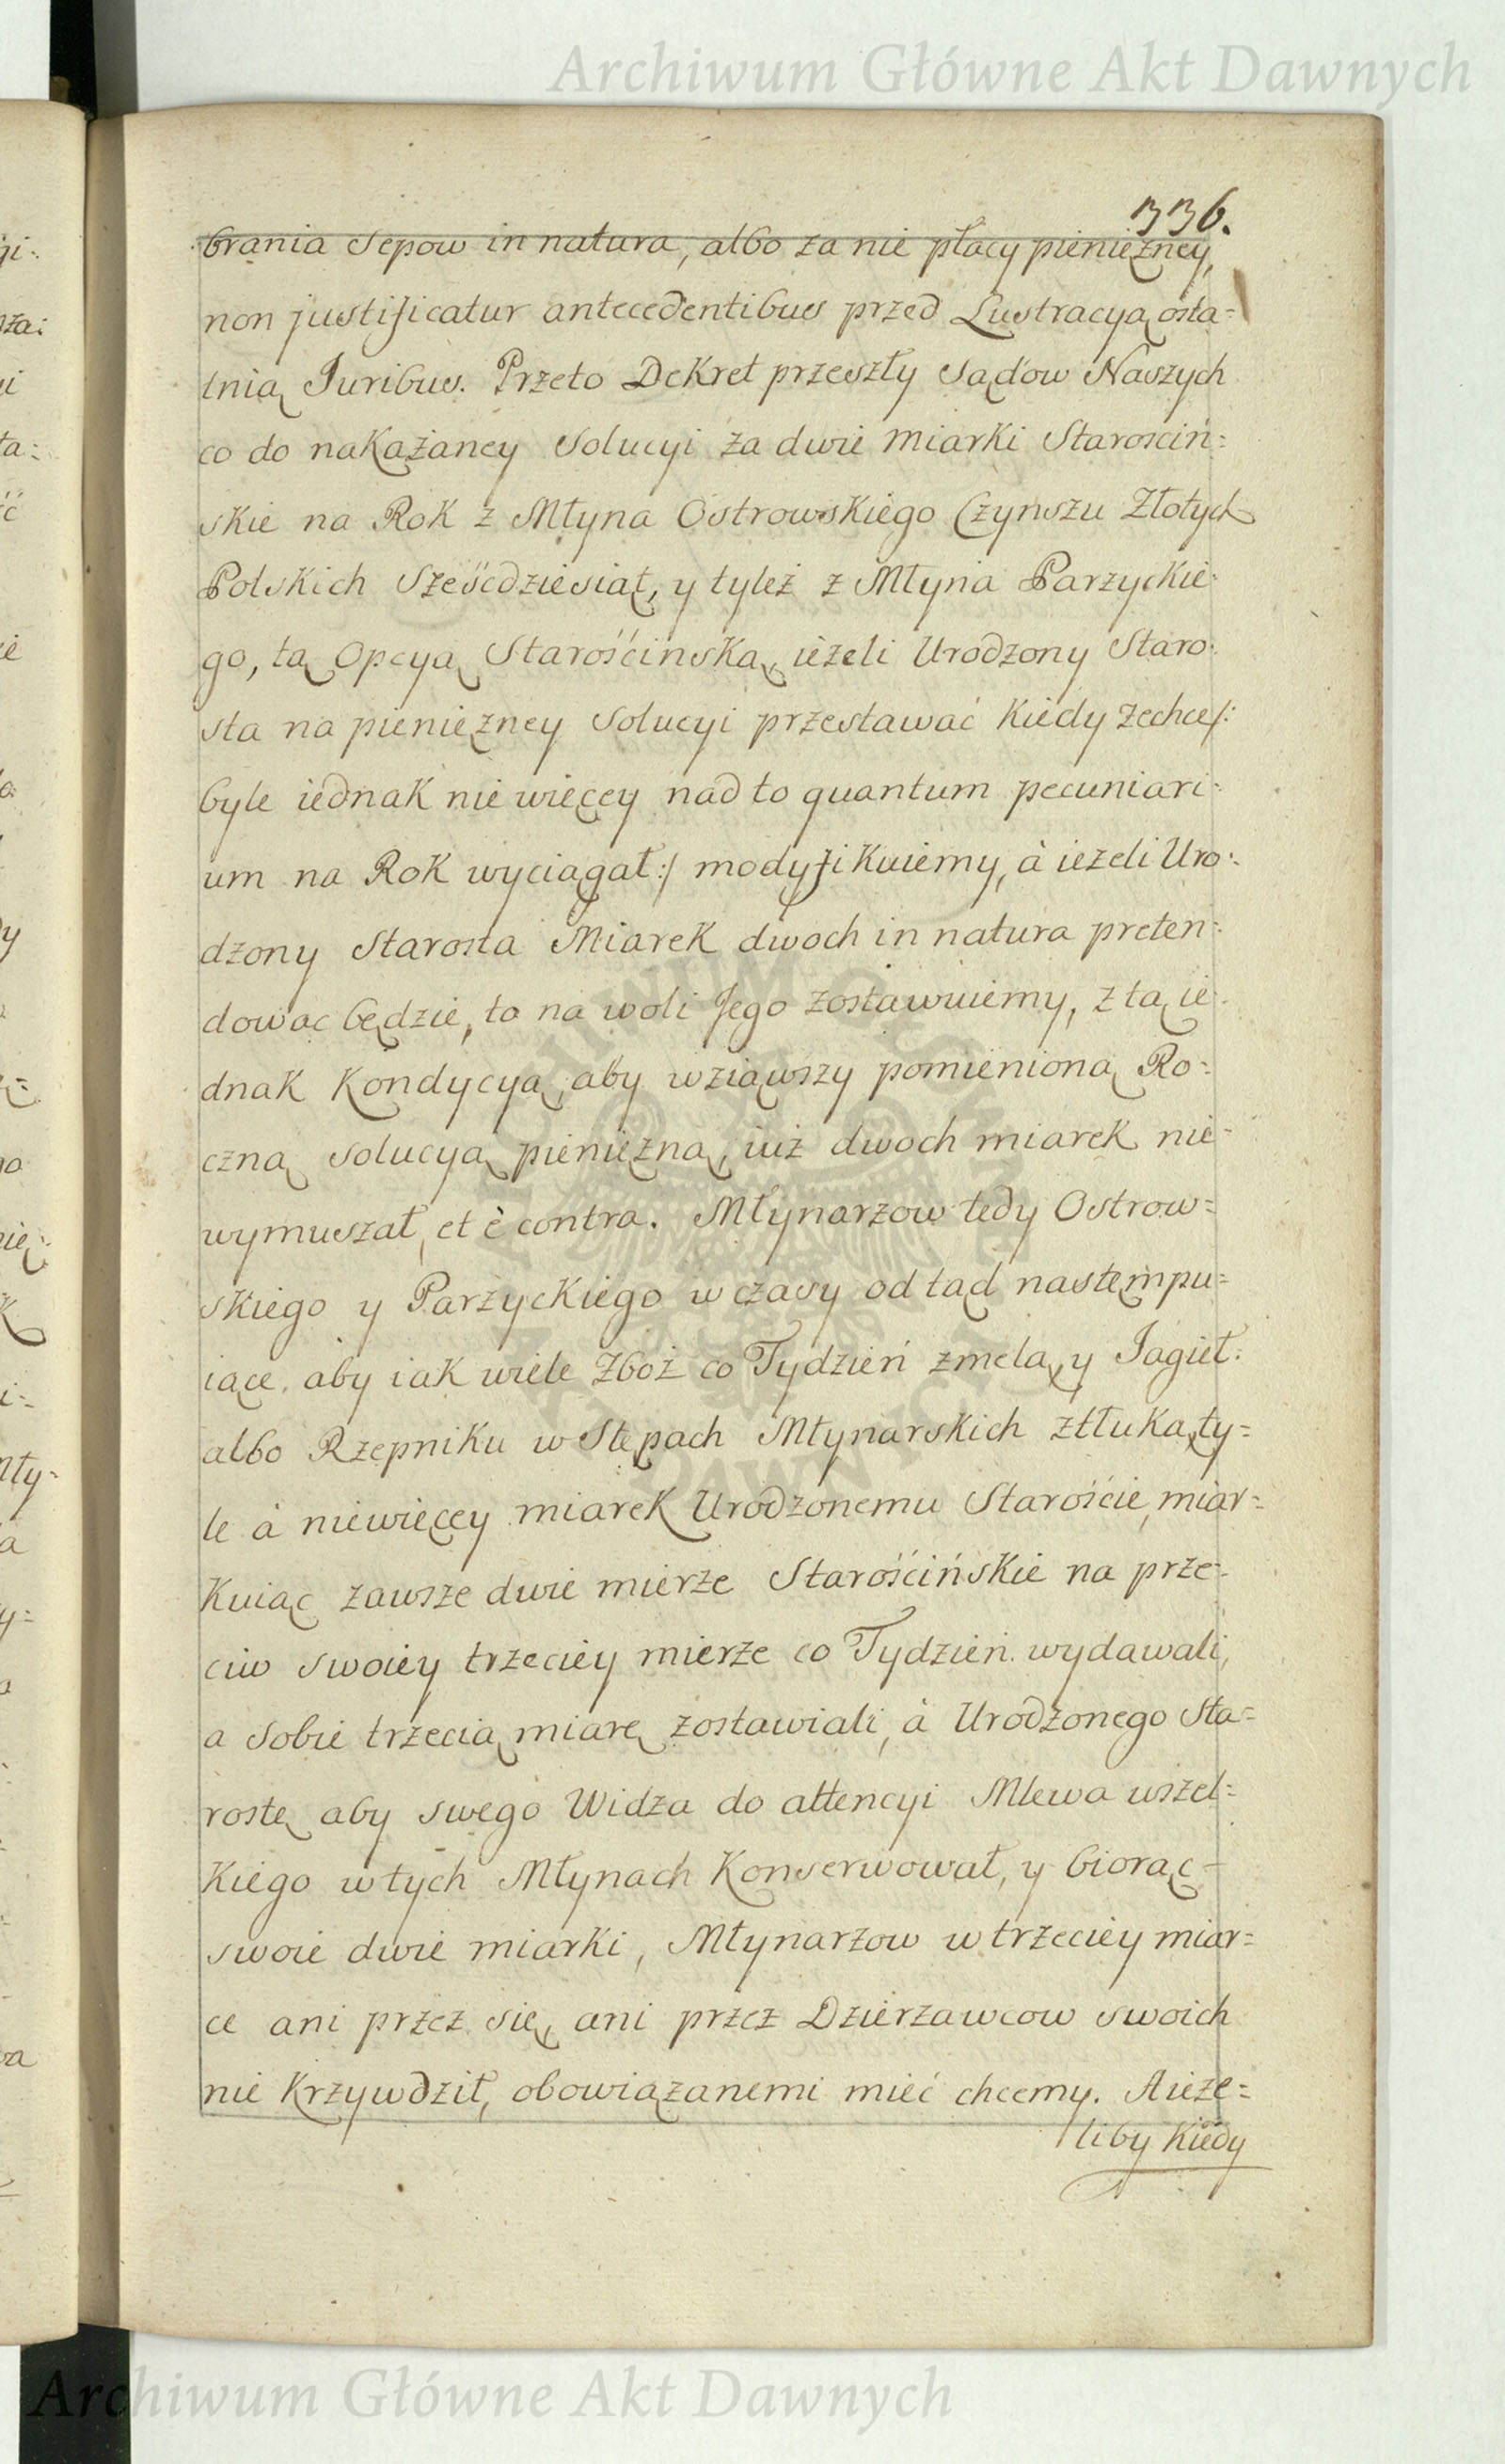 Archiwum Główne Akt Dawnych
336.
brania Sepow in natura, albo za nie płacy pienięzney,
non justificatur antecedentibus przed Lustracyą osta=
tnią Juribus. Przeto Dekret przeszły Sądow Naszych
co do nakazaney Solucyi za dwie miarki Starościń=
skie na Rok z Młyna Ostrowskiego Czynszu Złotych
Polskich Sześcdziesiąt, y tyleż z Młyna Parzyckie=
go, tą Opcyą Starościnską, ieżeli Urodzony Staro=
sta na pienięzney Solucyi przestawać kiedy zechce/:
byle iednak nie więcey nad to quantum pecuniari=
um na Rok wyciągał:/ modyfikuiemy, à ieżeli Uro=
dzony Starosta Miarek dwoch in natura preten=
dowac będzie, to na woli Jego zostawuiemy, z tą ie=
dnak Kondycyą, aby wziąwszy pomienioną Ro=
czną solucyą pienięzną, iuż dwoch miarek nie=
wymuszał, et è contra. Młynarzow tedy Ostrow=
skiego y Parzyckiego w czasy od tąd nastempu=
iące, aby iak wiele Zboż co Tydzień zmelą, y Jagieł=
albo Rzepniku w Stępach Młynarskich ztłuką, ty=
le à niewięcey miarek Urodzonemu Staroście, miar=
kuiąc zawsze dwie mierze Starościńskie na prze=
ciw swoiey trzeciey mierze co Tydzień wydawali,
a Sobie trzecią miarę zostawiali, à Urodzonego Sta=
rostę aby swego Widza do attencyi Mlewa wszel=
kiego w tych Młynach Konserwował, y biorąc
swoie dwie miarki, Młynarzow w trzeciey miar=
ce ani przez się, ani przez Dzierzawcow swoich
nie krzywdził, obowiązanemi mieć chcemy. Aieże=
liby kiedy
Archiwum Główne Akt Dawnych